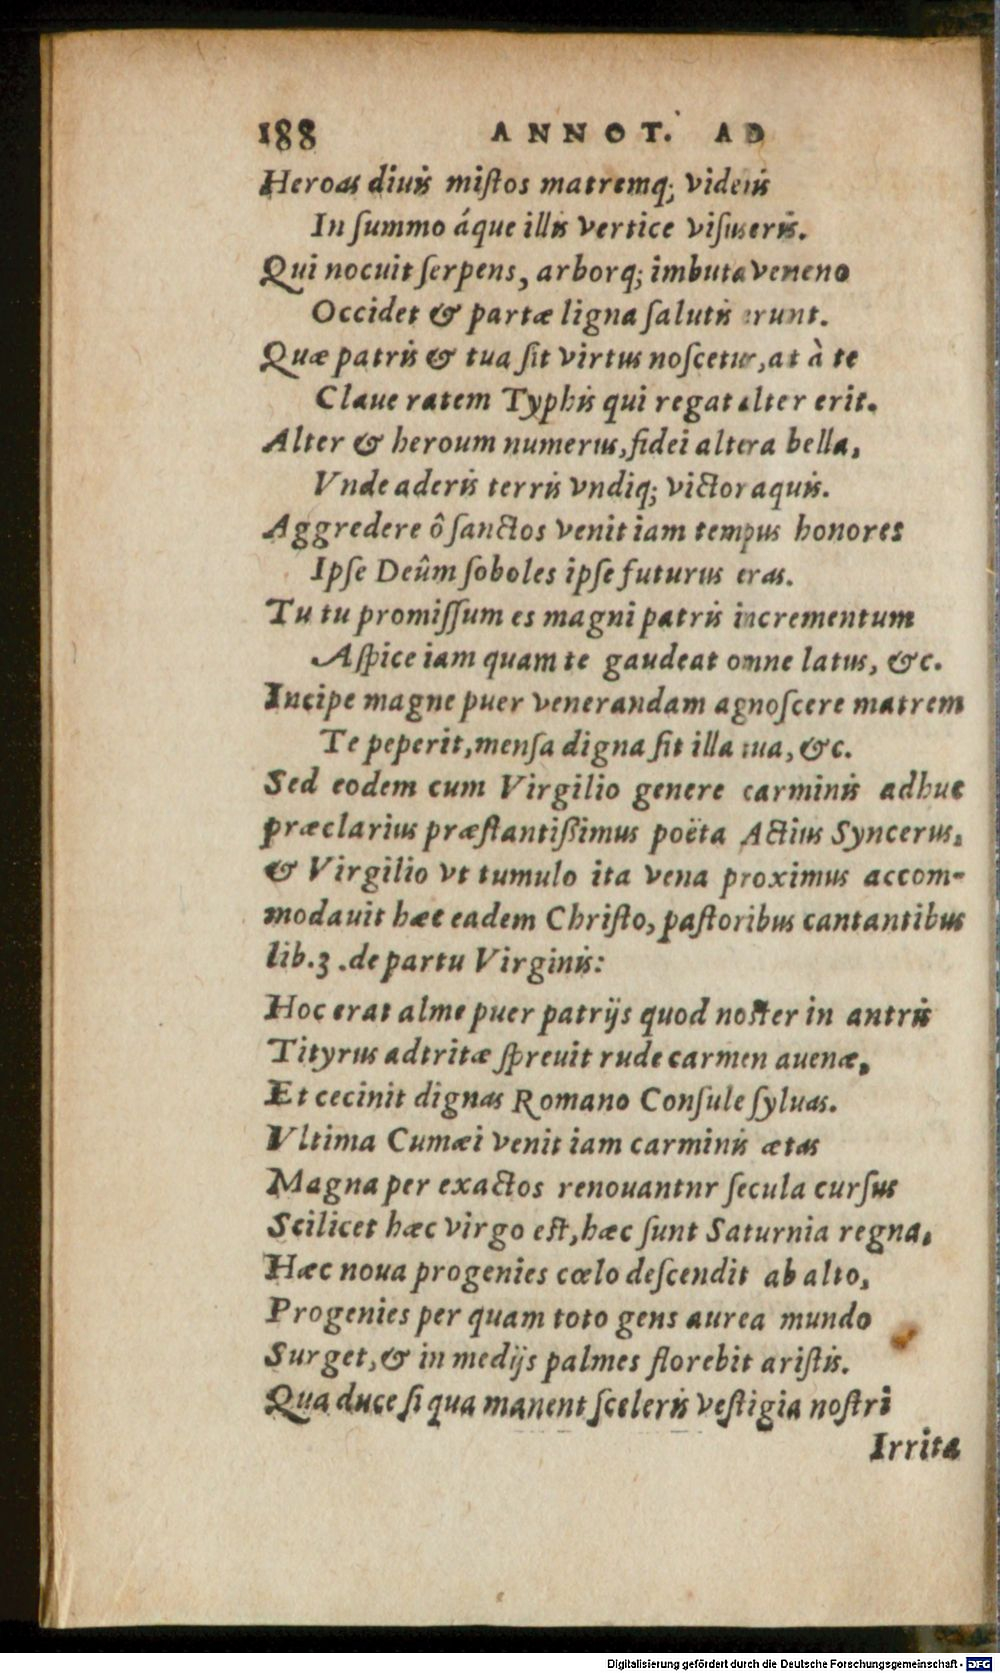 188 ANNOT. AD
Heroas diuis miſtos matremq; videris
In ſummo áque illis vertice viſus eris.
Qui nocuit ſerpens, arborq; imbuta veneno
Occidet & partæ ligna ſalutis erunt.
Quæ patris & tua ſit virtus noſcetur, at à te
Claue ratem Typhis qui regat alter erit.
Alter & heroum numerus, fidei altera bella,
Vnde aderis terris vndiq; victor aquis.
Aggredere ô ſanctos venit iam tempus honores
Ipſe Deûm ſoboles ipſe futurus eras.
Tu tu promiſſum es magni patris incrementum
Aſpice iam quam te gaudeat omne latus, &c.
Incipe magne puer venerandam agnoſcere matrem
Te peperit, menſa digna ſit illa tua, &c.
Sed eodem cum Virgilio genere carminis adhuc
præclarius præſtantißimus poëta Actius Syncerus,
& Virgilio vt tumulo ita vena proximus accom-
modauit hæc eadem Chriſto, paſtoribus cantantibus
lib.3 .de partu Virginis:
Hoc erat alme puer patrijs quod noſter in antris
Tityrus adtritæ ſpreuit rude carmen auenæ,
Et cecinit dignas Romano Conſule ſyluas.
Vltima Cumæi venit iam carminis ætas
Magna per exactos renouantnr ſecula curſus
Scilicet hæc virgo eſt, hæc ſunt Saturnia regna,
Hæc noua progenies cœlo deſcendit ab alto,
Progenies per quam toto gens aurea mundo
Surget, & in medijs palmes florebit ariſtis.
Qua duce ſi qua manent ſceleris veſtigia noſtri
Irrita
Digitalisierung gefördert durch die Deutsche Forschungsgemeinschaft - DFG